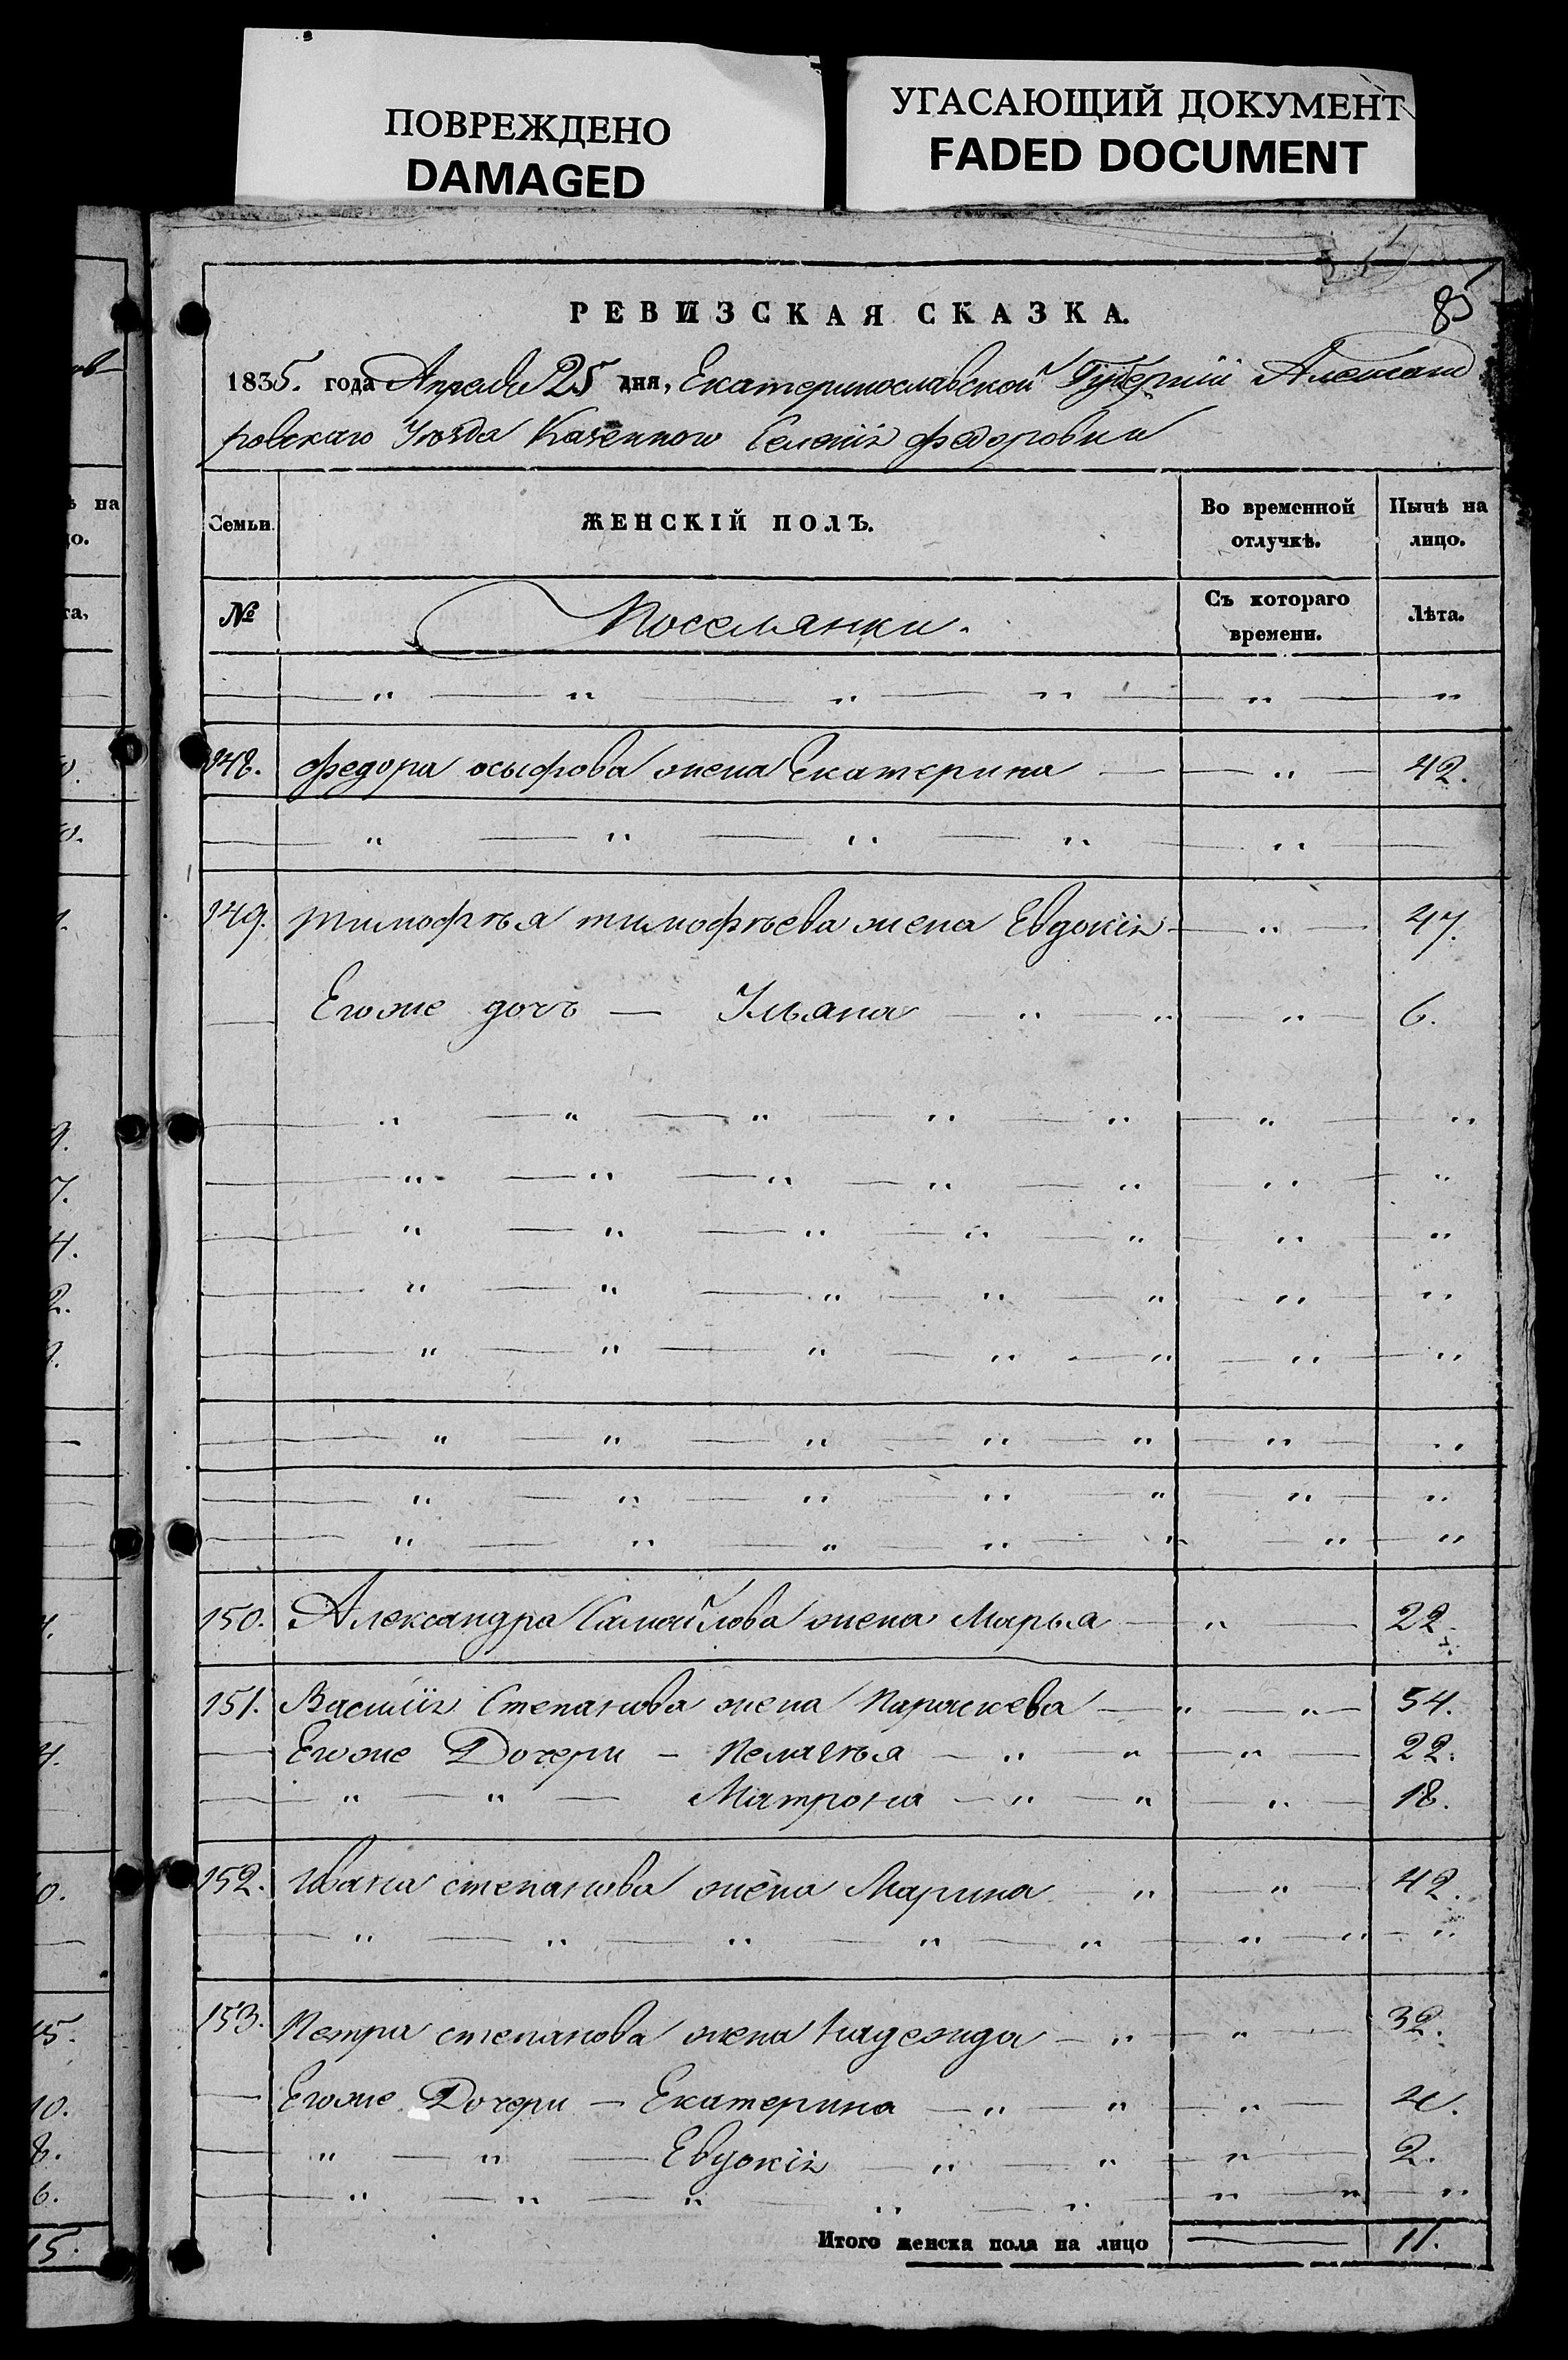 ПОВРЕЖДЕНО
DAMAGED
УГАСАЮЩИЙ ДОКУМЕНТ
FADED DOCUMENT
85
РЕВИЗСКАЯ СКАЗКА.
1835. года Апреля 25 дня, Екатеринославской Губерніи Александ
ровскаго Уѣзда Казеннаго Селенія Федоровки
Семьи. ЖЕНСКІЙ ПОЛЪ. Во временной отлучкѣ. Нынѣ на лицо.
№ Поселянки. Съ котораго времени. Лѣта.
148. Федора осыфова жена Екатерина — „ — 42.
149. Тимофѣя тимофѣева жена Евдокія — „ — 47.
Егоже дочь — Ульяна — „ — „ „ — 6.
150. Александра Самойлова жена Марья — „ — 22.
151. Василія Степанова жена Параскева — „ — „ — 54.
Егоже Дочери — Пелагѣя — „ — „ — „ — 22.
„ — „ — Матрона — „ — „ — „ — 18.
152. Ивана степанова жена Марина — „ — „ — 42.
153. Петра степанова жена надежда — „ — „ — 32.
Егоже Дочери — Екатерина — „ — „ — „ — 4.
„ — „ — Евдокія — „ — „ — „ — 2.
Итого женска пола на лицо — 11.